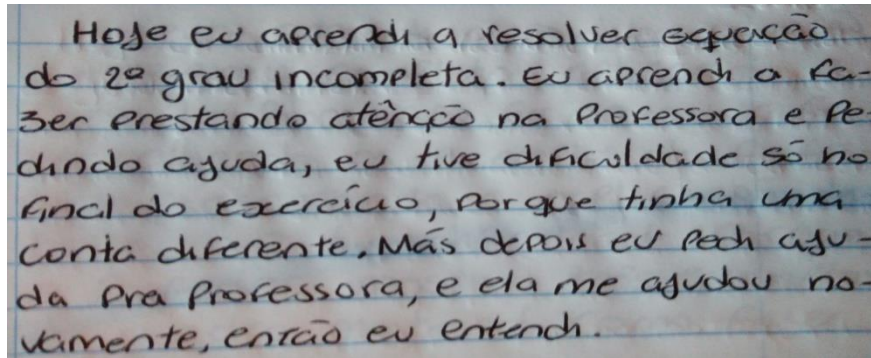 Hoje eu aprendi a resolver equação
do 2º grau incompleta. Eu aprendi a fa-
zer prestando atênção na Professora e Pe-
dindo ajuda, eu tive dificuldade só no
final do exercício, Porque tinha uma
conta diferente. Más depois eu Pedi aju-
da Pra Professora, e ela me ajudou no-
vamente, então eu entendi.